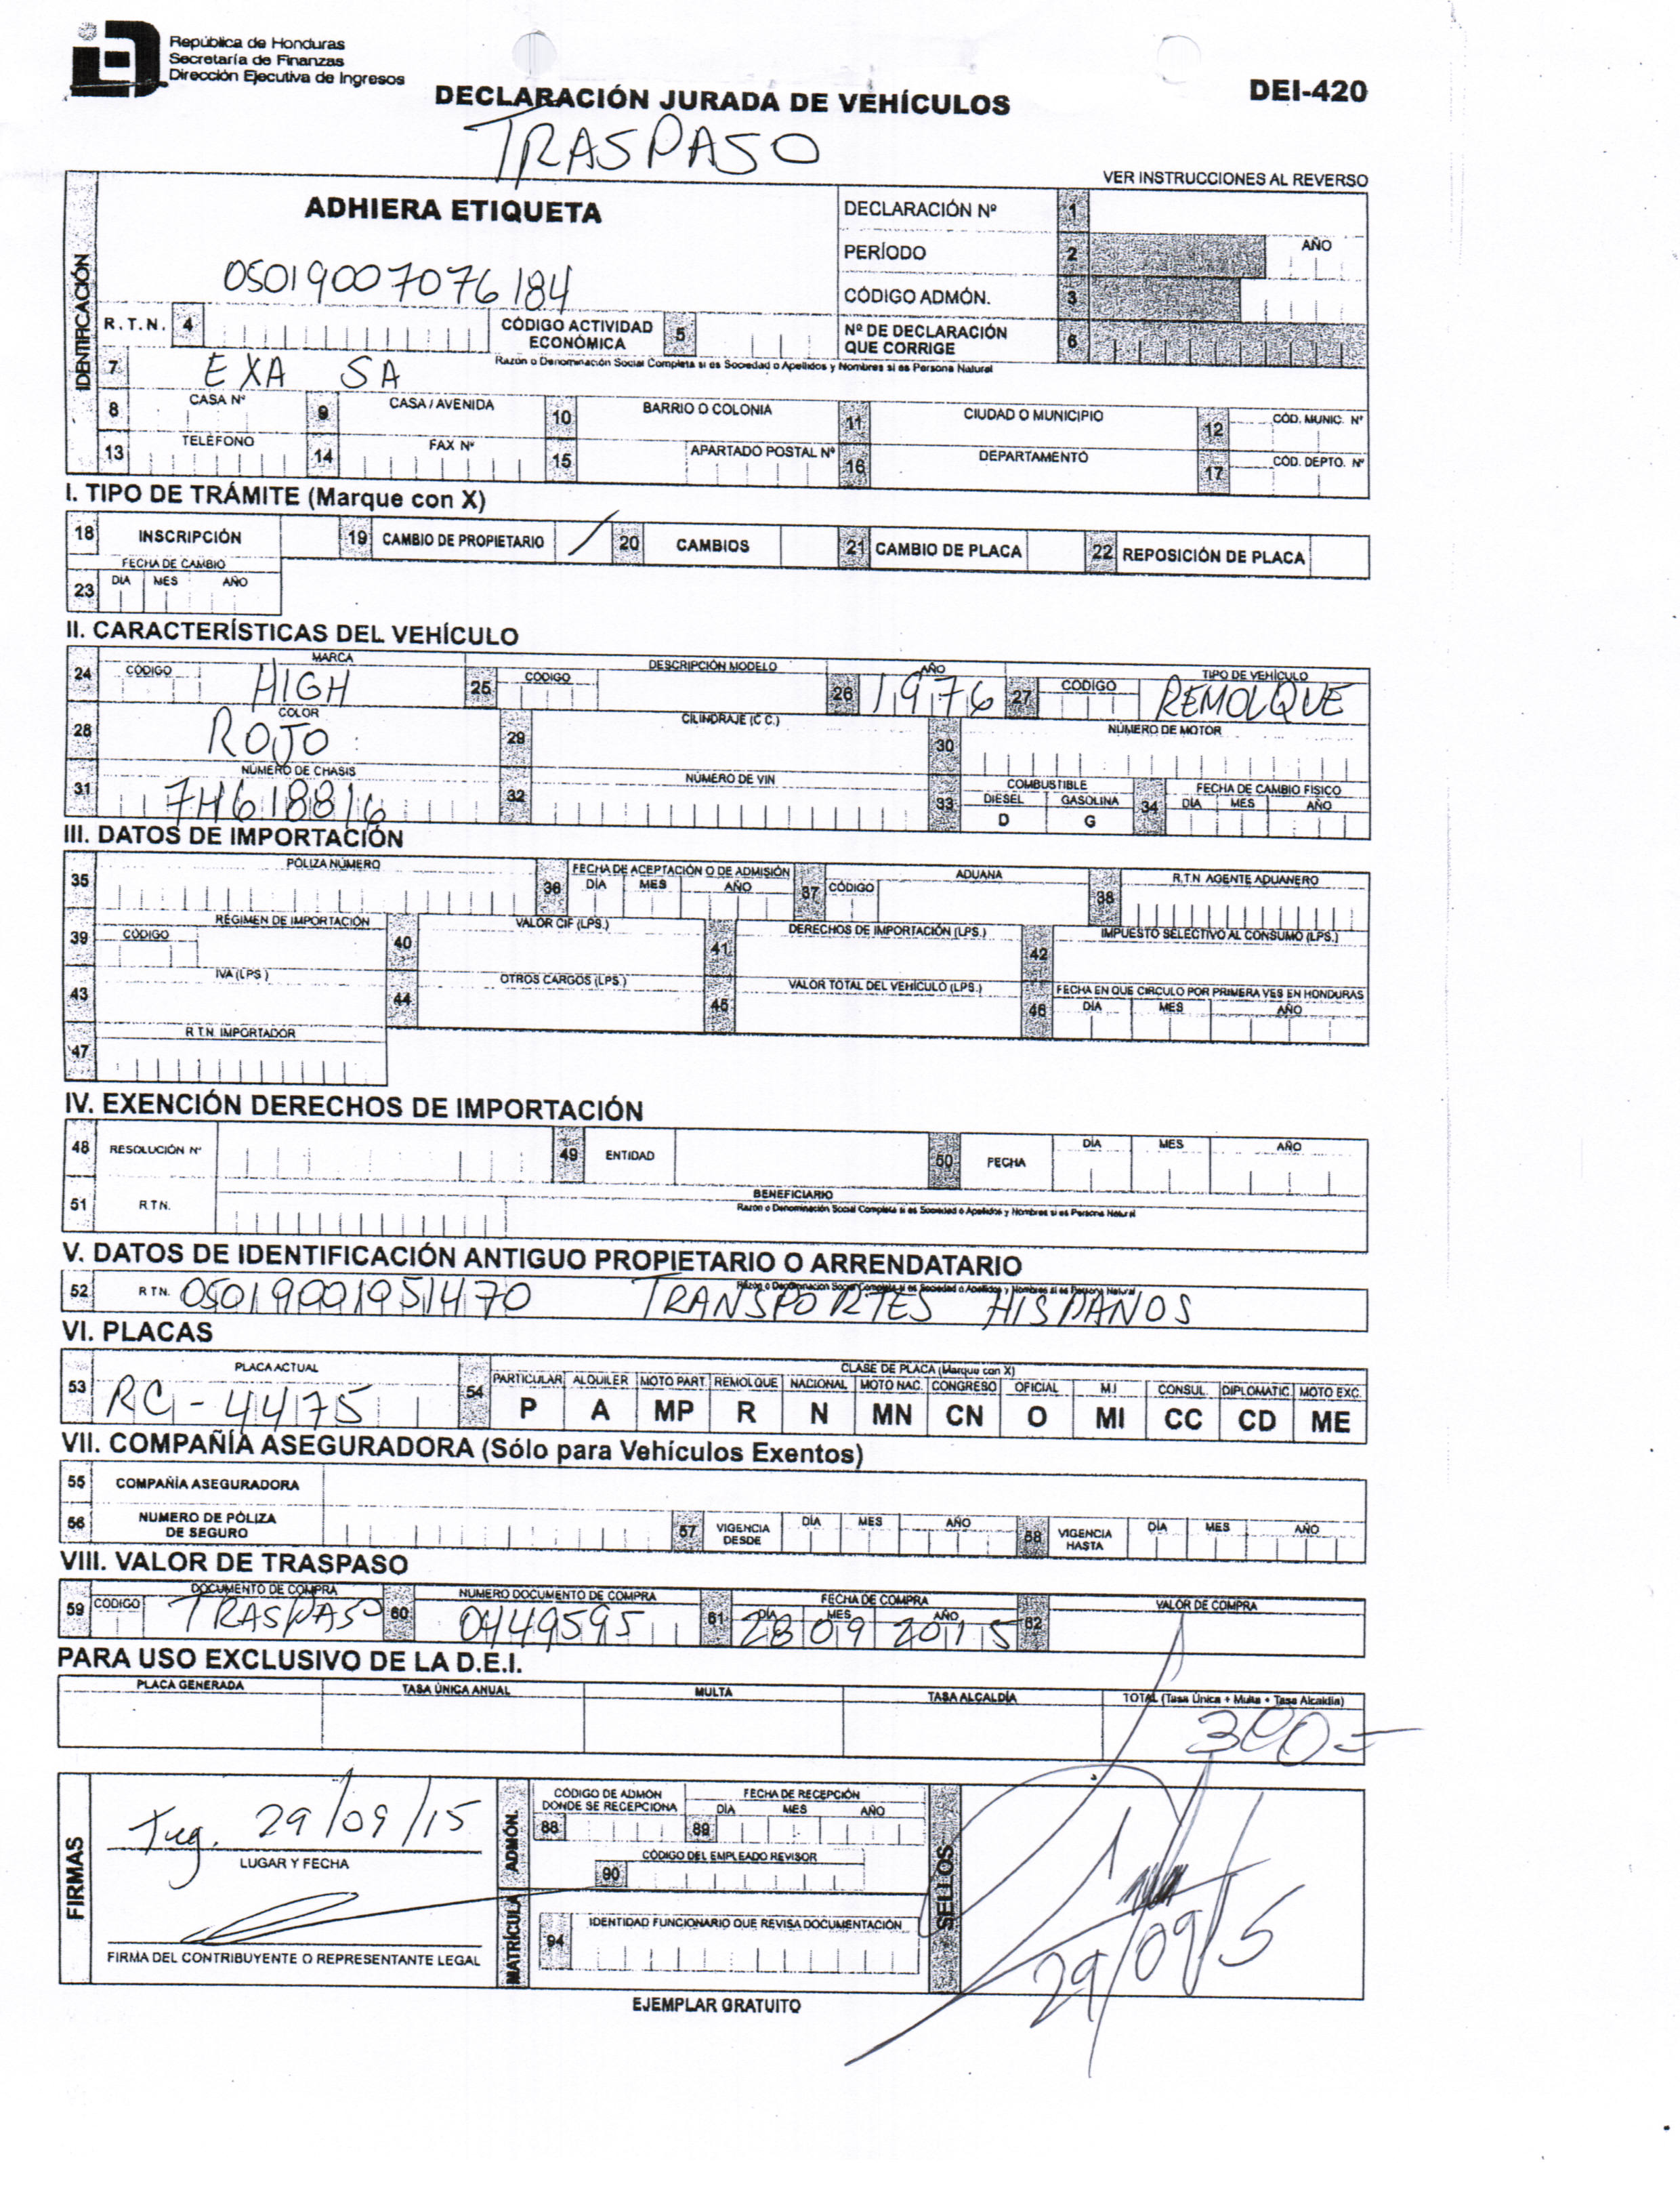 República de Honduras
Secretaría de Finanzas
Dirección Ejecutiva de Ingresos
DECLARACIÓN JURADA DE VEHÍCULOS
DEI-420
TRASPASO
VER INSTRUCCIONES AL REVERSO
IDENTIFICACIÓN
ADHIERA ETIQUETA
05019007076184
DECLARACIÓN Nº 1
PERÍODO 2 AÑO
CÓDIGO ADMÓN. 3
R.T.N. 4 CÓDIGO ACTIVIDAD ECONÓMICA 5 Nº DE DECLARACIÓN QUE CORRIGE 6
7 EXA SA Razón o Denominación Social Completa si es Sociedad o Apellidos y Nombres si es Persona Natural
8 CASA Nº 9 CASA / AVENIDA 10 BARRIO O COLONIA 11 CIUDAD O MUNICIPIO 12 CÓD. MUNIC. Nº
13 TELÉFONO 14 FAX Nº 15 APARTADO POSTAL Nº 16 DEPARTAMENTO 17 CÓD. DEPTO. Nº
I. TIPO DE TRÁMITE (Marque con X)
18 INSCRIPCIÓN 19 CAMBIO DE PROPIETARIO / 20 CAMBIOS 21 CAMBIO DE PLACA 22 REPOSICIÓN DE PLACA
FECHA DE CAMBIO
23 DÍA MES AÑO
II. CARACTERÍSTICAS DEL VEHÍCULO
24 CÓDIGO MARCA HIGH 25 CODIGO DESCRIPCIÓN MODELO 26 AÑO 1976 27 CODIGO TIPO DE VEHÍCULO REMOLQUE
28 COLOR ROJO 29 CILINDRAJE (C.C.) 30 NÚMERO DE MOTOR
31 NÚMERO DE CHASIS 7H618816 32 NÚMERO DE VIN 33 COMBUSTIBLE DIESEL D GASOLINA G 34 FECHA DE CAMBIO FÍSICO DÍA MES AÑO
III. DATOS DE IMPORTACIÓN
35 POLIZA NÚMERO 36 FECHA DE ACEPTACIÓN O DE ADMISIÓN DÍA MES AÑO 37 CÓDIGO ADUANA 38 R.T.N AGENTE ADUANERO
39 CÓDIGO RÉGIMEN DE IMPORTACIÓN 40 VALOR CIF (LPS.) 41 DERECHOS DE IMPORTACIÓN (LPS.) 42 IMPUESTO SELECTIVO AL CONSUMO (LPS.)
43 IVA (LPS ) 44 OTROS CARGOS (LPS ) 45 VALOR TOTAL DEL VEHÍCULO (LPS.) 46 FECHA EN QUE CIRCULO POR PRIMERA VES EN HONDURAS DÍA MES AÑO
47 R.T.N IMPORTADOR
IV. EXENCIÓN DERECHOS DE IMPORTACIÓN
48 RESOLUCIÓN Nº 49 ENTIDAD 50 FECHA DÍA MES AÑO
51 R.T.N. BENEFICIARIO Razón o Denominación Social Completa si es Sociedad o Apellidos y Nombres si es Persona Natural
V. DATOS DE IDENTIFICACIÓN ANTIGUO PROPIETARIO O ARRENDATARIO
52 R.T.N. 05019001951470 Razón o Denominación Social Completa si es Sociedad o Apellidos y Nombres si es Persona Natural TRANSPORTES HISPANOS
VI. PLACAS
53 PLACA ACTUAL RC-4475 54 CLASE DE PLACA (Marque con X)
PARTICULAR ALQUILER MOTO PART. REMOLQUE NACIONAL MOTO NAC. CONGRESO OFICIAL M.I CONSUL. DIPLOMATIC. MOTO EXC.
P A MP R N MN CN O MI CC CD ME
VII. COMPAÑÍA ASEGURADORA (Sólo para Vehículos Exentos)
55 COMPAÑÍA ASEGURADORA
56 NUMERO DE PÓLIZA DE SEGURO 57 VIGENCIA DESDE DÍA MES AÑO 58 VIGENCIA HASTA DÍA MES AÑO
VIII. VALOR DE TRASPASO
59 CODIGO DOCUMENTO DE COMPRA TRASPASO 60 NUMERO DOCUMENTO DE COMPRA 0449595 61 FECHA DE COMPRA DÍA MES AÑO 28 09 2015 62 VALOR DE COMPRA
PARA USO EXCLUSIVO DE LA D.E.I.
PLACA GENERADA TASA ÚNICA ANUAL MULTA TASA ALCALDÍA TOTAL (Tasa Única + Multa + Tasa Alcaldía)
300=
FIRMAS
Tug. 29/09/15
LUGAR Y FECHA
FIRMA DEL CONTRIBUYENTE O REPRESENTANTE LEGAL
MATRÍCULA ADMÓN.
CÓDIGO DE ADMÓN DONDE SE RECEPCIONA 88 FECHA DE RECEPCIÓN 89 DÍA MES AÑO
CÓDIGO DEL EMPLEADO REVISOR 90
IDENTIDAD FUNCIONARIO QUE REVISA DOCUMENTACIÓN 94
SELLOS
29/09/15
EJEMPLAR GRATUITO